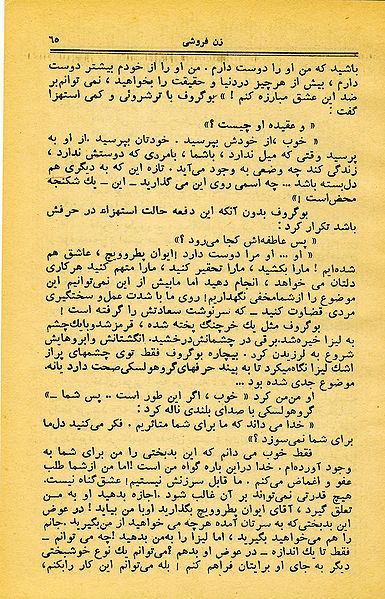 زن فروشی
۶۵
باشید که من او را دوست دارم . من او را از خودم بیشتر دوست
دارم ، بیش از هرچیز دردنیا و حقیقت را بخواهید ، نمی توانم بر
ضد این عشق مبارزه کنم ! » بوگروف با ترشروئی و کمی استهزا
گفت :
« و عقیده او چیست ؟»
« خوب ،از خودش بپرسید . خودتان بپرسید .از او به
پرسید وقتی که میل ندارد ، باشما ، بامردی که دوستش ندارد ،
زندگی کند چه وضعی به وجود می‌آید . تازه این که به دیگری هم
دل‌بسته باشد ... چه اسمی روی این می گذارید ــ این ــ یك شکنجه
محض‌است !»
بوگروف بدون آنکه این دفعه حالت استهزاء در حرفش
باشد تکرار کرد :
« پس عاطفه‌اش کجا می‌رود ؟»
« او ... او مرا دوست دارد !ایوان پطروویچ ، عاشق هم
شده‌ایم ! مارا بکشید ، مارا تحقیر کنید ، مارا متهم کنید هرکاری
دلتان می خواهد ، انجام دهید اما مابیش از این نمی‌توانیم این
موضوع را ازشمامخفی نگهداریم! روی ما با شدت عمل‌و سختگیری
مردی قضاوت کنید ــ که سرنوشت سعادتش را گرفته است !
بوگروف مثل یك خرچنگ پخته شده ، قرمزشدوبایك‌چشم
به لیزا خیره‌شد.برقی در چشمانش‌درخشید. انگشتانش وابروهایش
شروع به لرزیدن کرد . بیچاره بوگروف فقط توی چشمهای پراز
اشك لیزا نگاه‌میکرد تا به بیند حرفهای‌گروهولسکی‌صحت دارد یانه.
موضوع جدی شده بود ...
او من‌من کرد « خوب ، اگر این طور است .. پس شما ــ»
گروهولسکی با صدای بلندی ناله کرد :
« خدا می داند که ما برای شما متاثریم . فکر می‌کنید دل‌ما
برای شما نمی‌سوزد ؟»
فقط خوب می دانم که این بدبختی را من برای شما به
وجود آورده‌ام . خدا دراین باره گواه من است !اما من ازشما طلب
عفو و اغماض می‌کنم . ما قابل سرزنش نیستیم! عشق‌گناه نیست.
هیچ قدرتی نمی‌تواند بر آن غالب شود .اجازه بدهید او به من
تعلق گیرد ، آقای ایوان پطروویچ بگذارید اوبا من بیاید ! در عوض
این بدبختی‌که به سرتان آمده هرچه می خواهید از من‌بگیرید. جانم
را هم می‌خواهید بگیرید ، اما لیزا را به‌من بدهید !چه می توانم ــ
فقط تا یك اندازه ــ در عوض او بدهم ؟می‌توانم یك نوع خوشبختی
دیگر به جای او برایتان فراهم کنم ! بله می‌توانم این کار رابکنم،